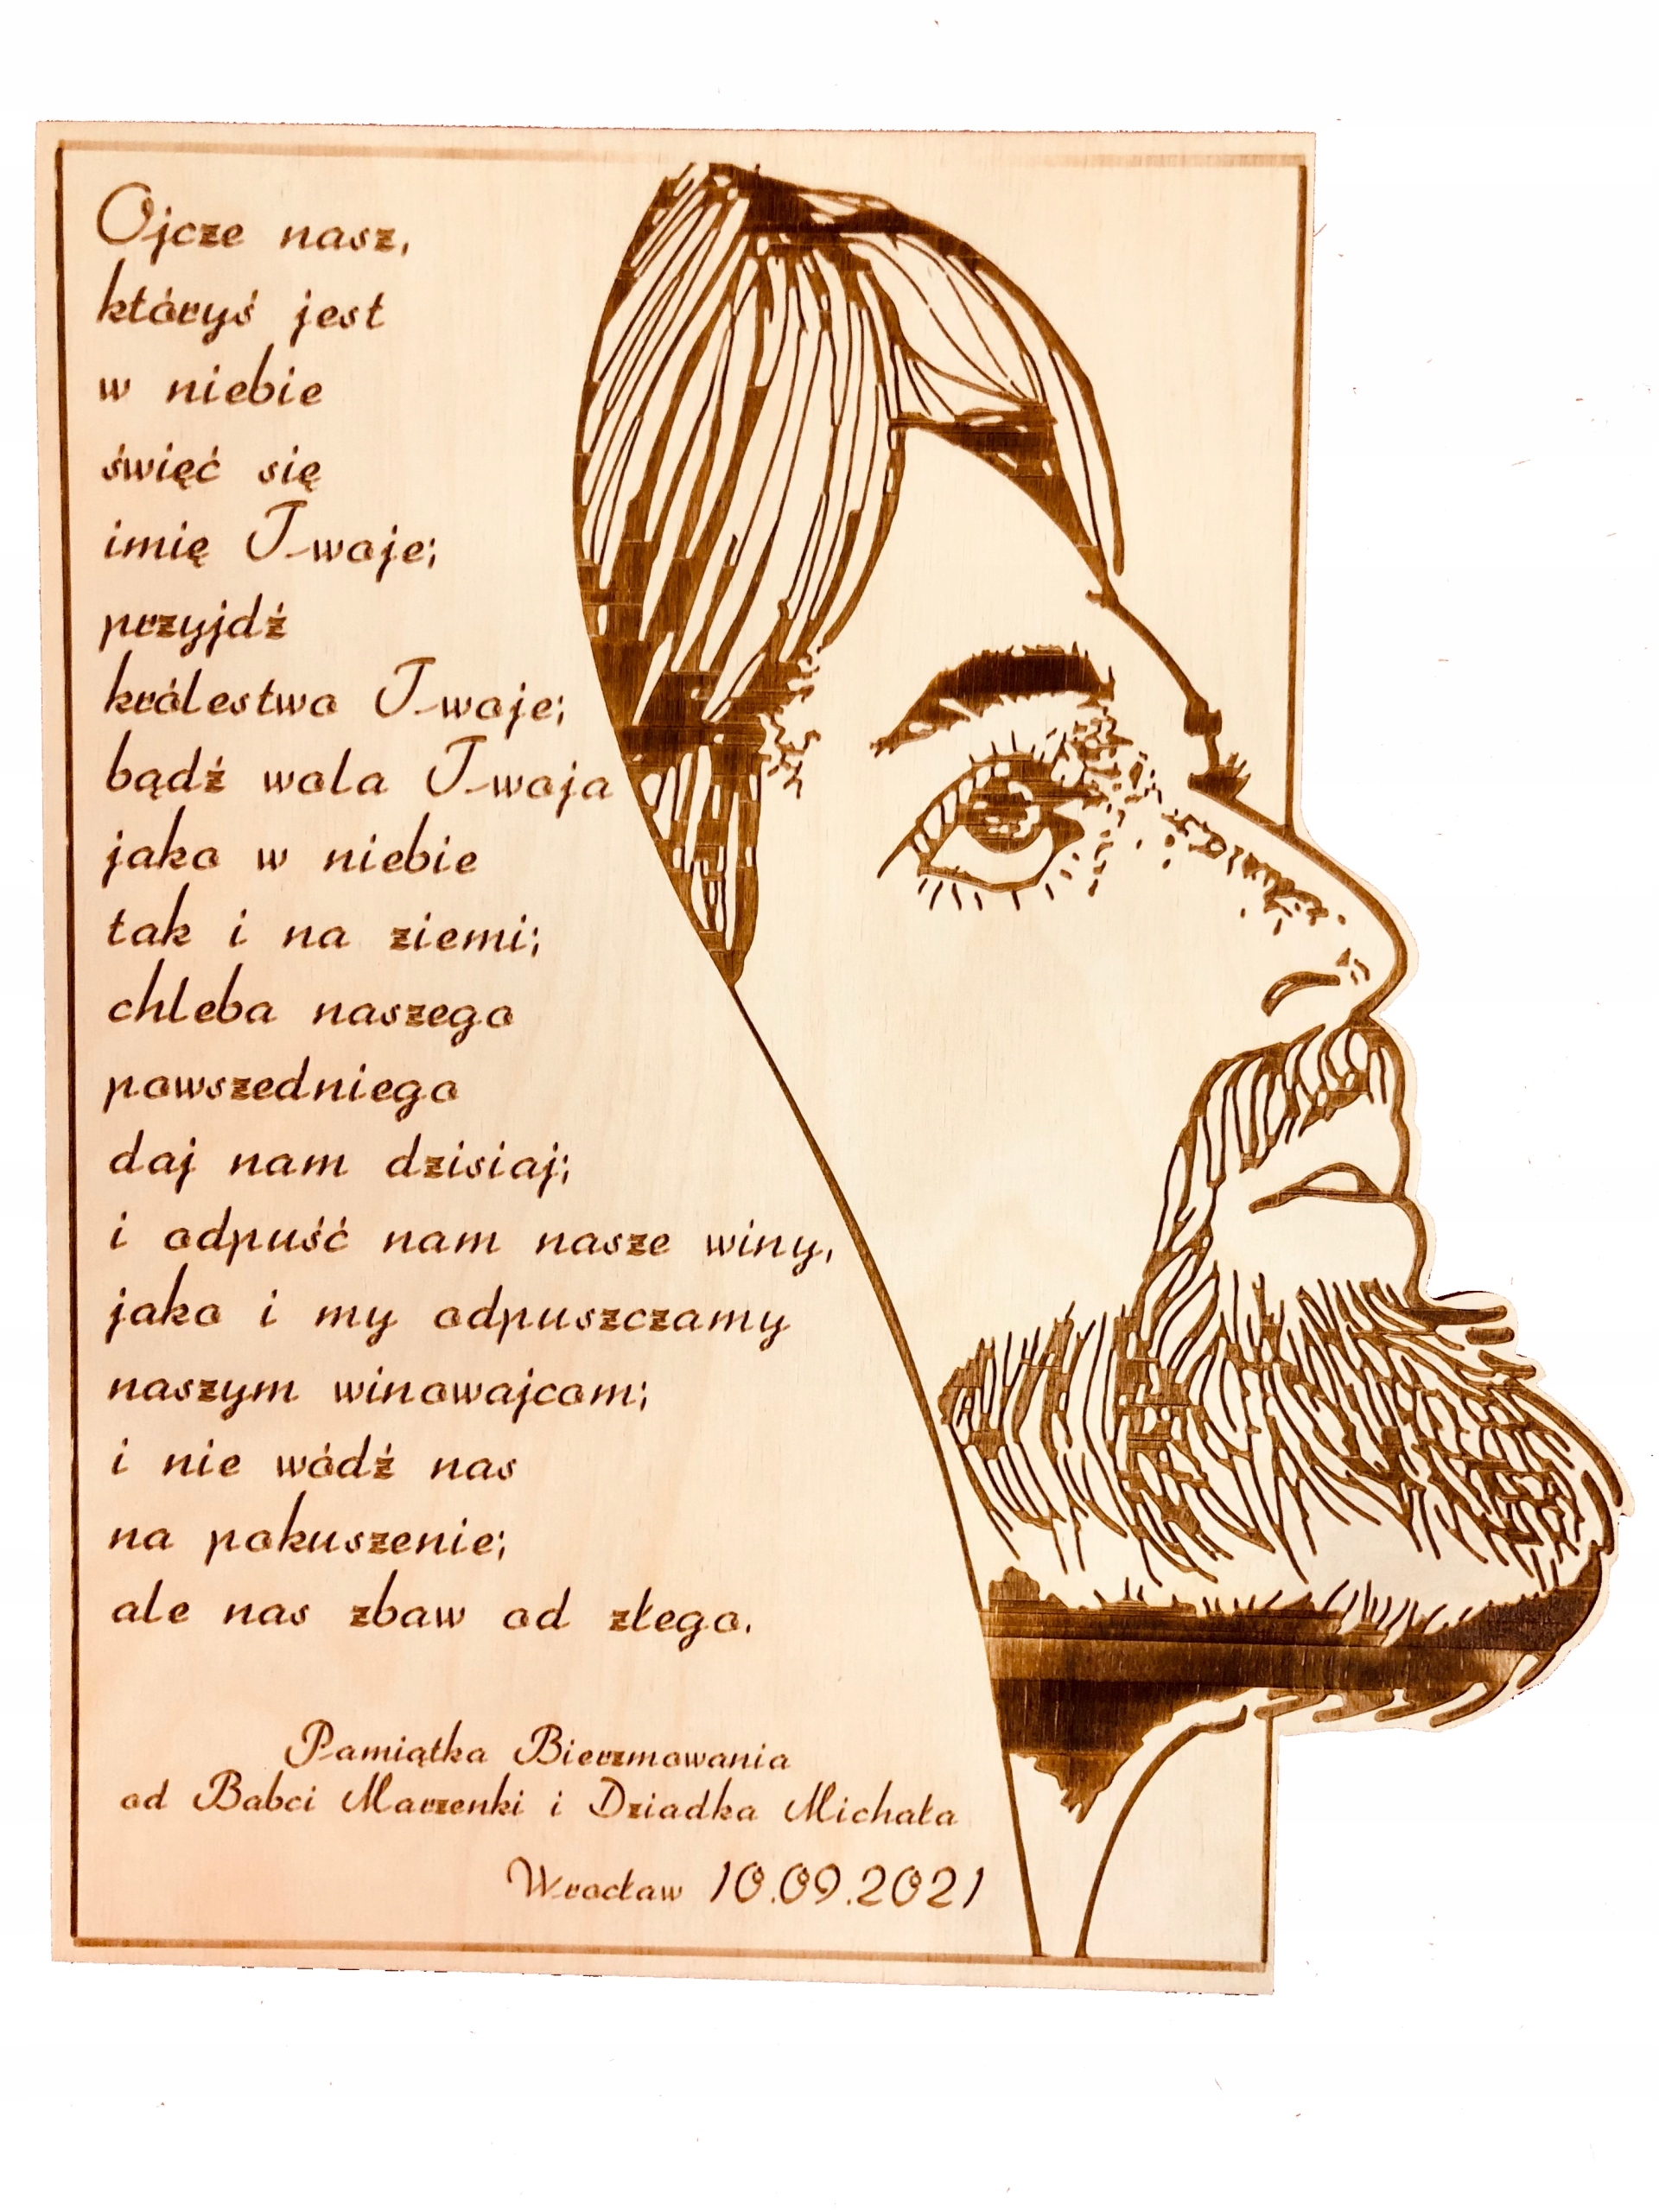 Ojcze nasz,
któryś jest
w niebie
święć się
imię Twoje;
przyjdź
królestwo Twoje;
bądź wola Twoja
jako w niebie
tak i na ziemi;
chleba naszego
powszedniego
daj nam dzisiaj;
i odpuść nam nasze winy,
jako i my odpuszczamy
naszym winowajcom;
i nie wódź nas
na pokuszenie;
ale nas zbaw od złego.
Pamiątka Bierzmowania
od Babci Marzenki i Dziadka Michała
Wrocław 10.09.2021